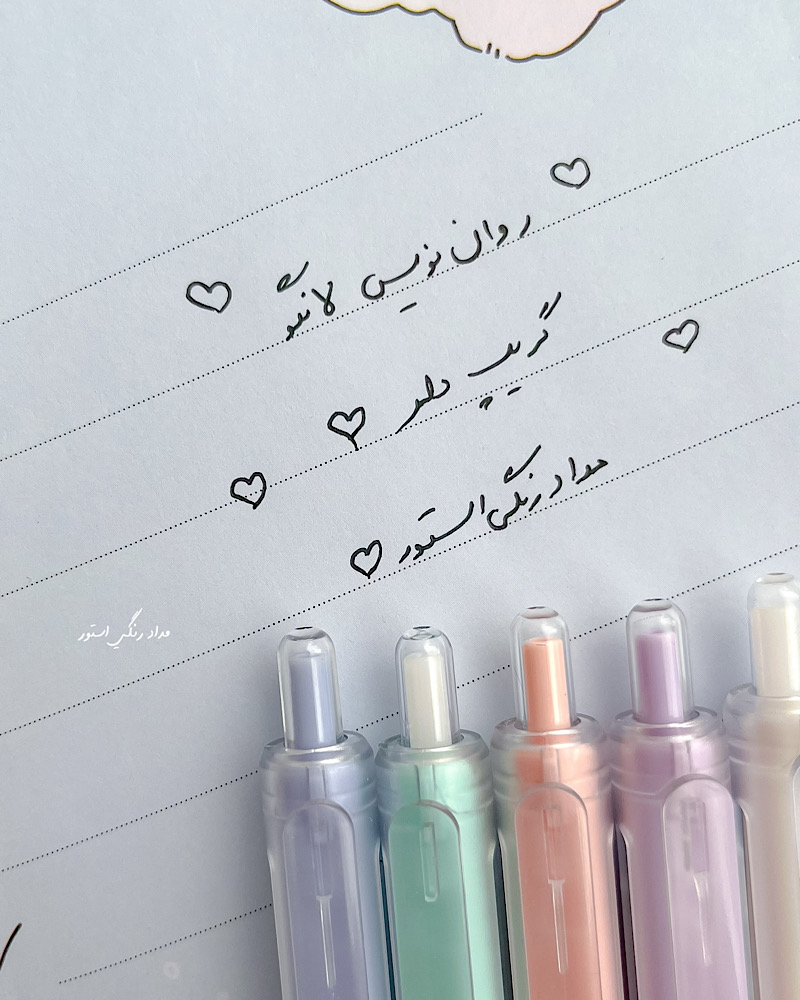 روان نویس لانگو
گریپ دار
مداد رنگی استور
مداد رنگی استور